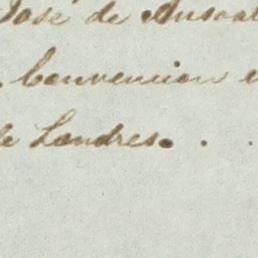 José de Ansoat
Convencion
de Londres. . .